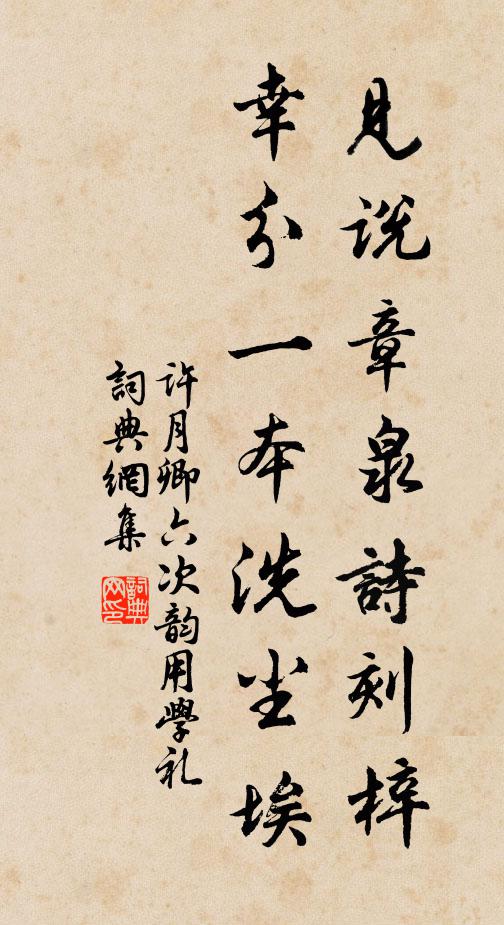 見說章泉詩刻梓
幸分一本洗尘埃
許月卿六次韵用學礼
詞典網集
詞典网印